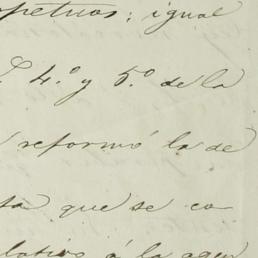 petuos; igual
4.º y 5.º de la
reformó la de
que se co
lativo á la agen